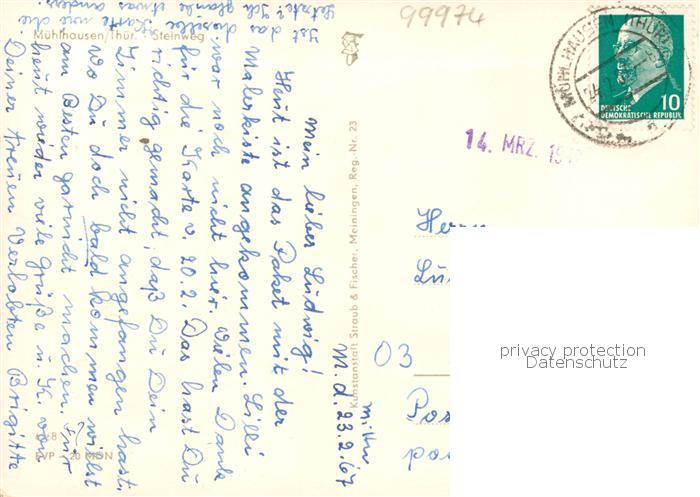 Ist das dieselbe Karte wie die
Letzte? Ich glaube etwas anders.
99974
Mühlhausen/Thür. Steinweg
M. d. 23.2.67
Mein lieber Ludwig!
Heut ist das Paket mit der
Malerkiste angekommen. Lilli
war noch nicht hier. Vielen Dank
für die Karte v. 20.2. Das hast Du
richtig gemacht, daß Du Dein
Zimmer nicht angefangen hast.
Wo Du doch bald kommen willst
am Besten garnicht machen. Für
heut wieder viele Grüße u. K. von
Deiner treuen Verlobten Brigitte
EVP - 20 MDN
Kunstanstalt Straub & Fischer, Meiningen, Reg.-Nr. 23
MÜHLHAUSEN (THÜR)
10
DEUTSCHE
DEMOKRATISCHE REPUBLIK
14. MRZ. 19
Herrn
Lu
03
Pos
privacy protection
Datenschutz